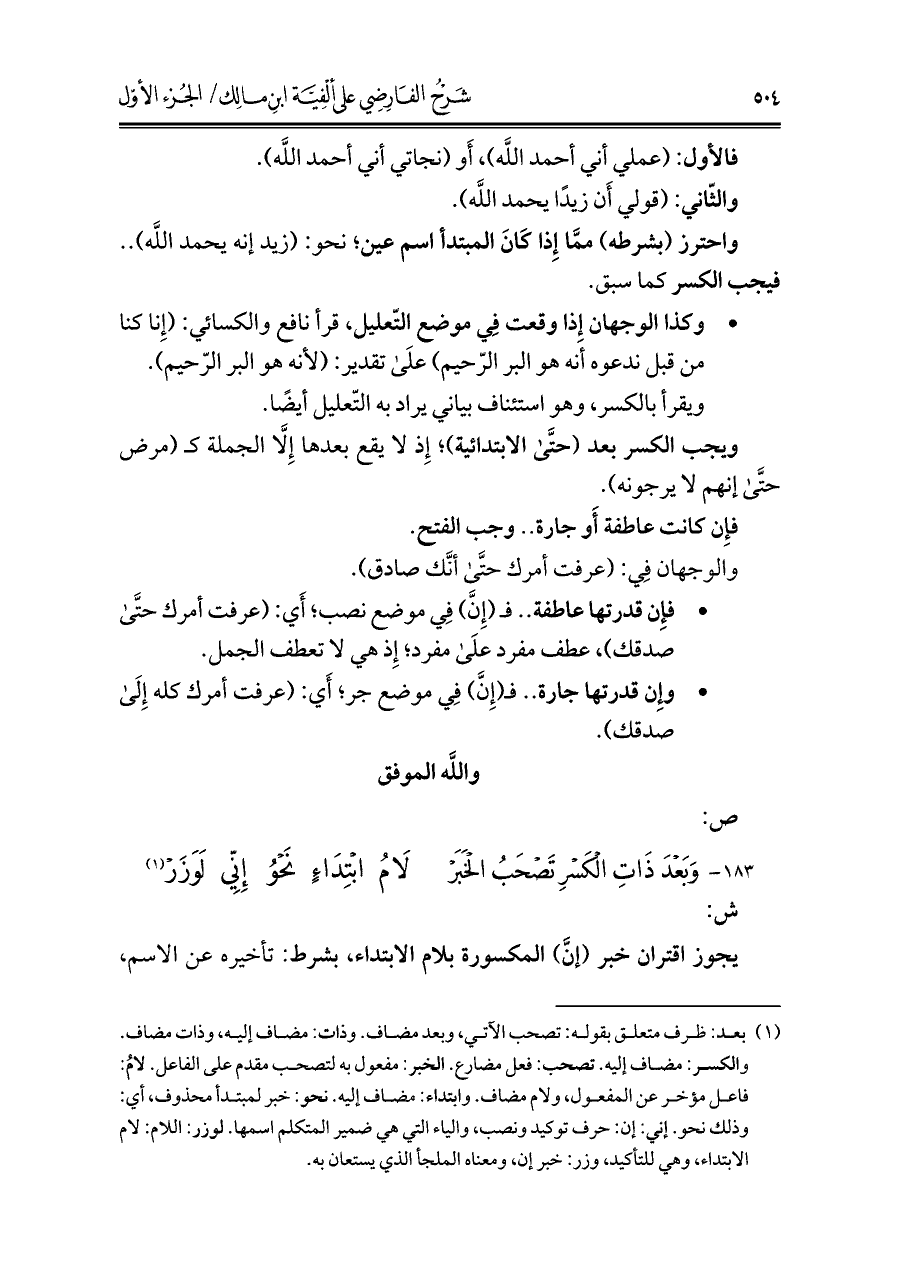 ٥٠٤ شَرْحُ الفَارِضِي عَلى أَلْفِيَّة ابنِ مَالِك / الجُزء الأوّل
فالأول: (عملي أني أحمد اللَّه)، أَو (نجاتي أني أحمد اللَّه).
والثّاني: (قولي أَن زيدًا يحمد اللَّه).
واحترز (بشرطه) ممَّا إِذا كَانَ المبتدأ اسم عين؛ نحو: (زيد إنه يحمد اللَّه)..
فيجب الكسر كما سبق.
• وكذا الوجهان إِذا وقعت فِي موضع التّعليل، قرأ نافع والكسائي: (إِنا كنا
من قبل ندعوه أَنه هو البر الرّحيم) علَىٰ تقدير: (لأنه هو البر الرّحيم).
ويقرأ بالكسر، وهو استئناف بياني يراد به التّعليل أيضًا.
ويجب الكسر بعد (حتَّىٰ الابتدائية)؛ إِذ لا يقع بعدها إِلَّا الجملة كـ (مرض
حتَّىٰ إنهم لا يرجونه).
فإِن كانت عاطفة أَو جارة.. وجب الفتح.
والوجهان فِي: (عرفت أمرك حتَّىٰ أنَّك صادق).
• فإِن قدرتها عاطفة.. فـ (إِنَّ) فِي موضع نصب؛ أَي: (عرفت أمرك حتَّىٰ
صدقك)، عطف مفرد علَىٰ مفرد؛ إِذ هي لا تعطف الجمل.
• وإِن قدرتها جارة.. فـ(إِنَّ) فِي موضع جر؛ أَي: (عرفت أمرك كله إِلَىٰ
صدقك).
واللَّه الموفق
ص:
١٨٣- وَبَعْدَ ذَاتِ الْكَسْرِ تَصْحَبُ الْخَبَرْ لَامُ ابْتِدَاءٍ نَحْوُ إِنِّي لَوَزَرْ(١)
ش:
يجوز اقتران خبر (إنَّ) المكسورة بلام الابتداء، بشرط: تأخيره عن الاسم،
(١) بعد: ظرف متعلق بقوله: تصحب الآتي، وبعد مضاف. وذات: مضاف إليه، وذات مضاف.
والكسر: مضاف إليه. تصحب: فعل مضارع. الخبر: مفعول به لتصحب مقدم على الفاعل. لامُ:
فاعل مؤخر عن المفعول، ولام مضاف. وابتداء: مضاف إليه. نحو: خبر لمبتدأ محذوف، أي:
وذلك نحو. إني: إن: حرف توكيد ونصب، والياء التي هي ضمير المتكلم اسمها. لوزر: اللام: لام
الابتداء، وهي للتأكيد، وزر: خبر إن، ومعناه الملجأ الذي يستعان به.